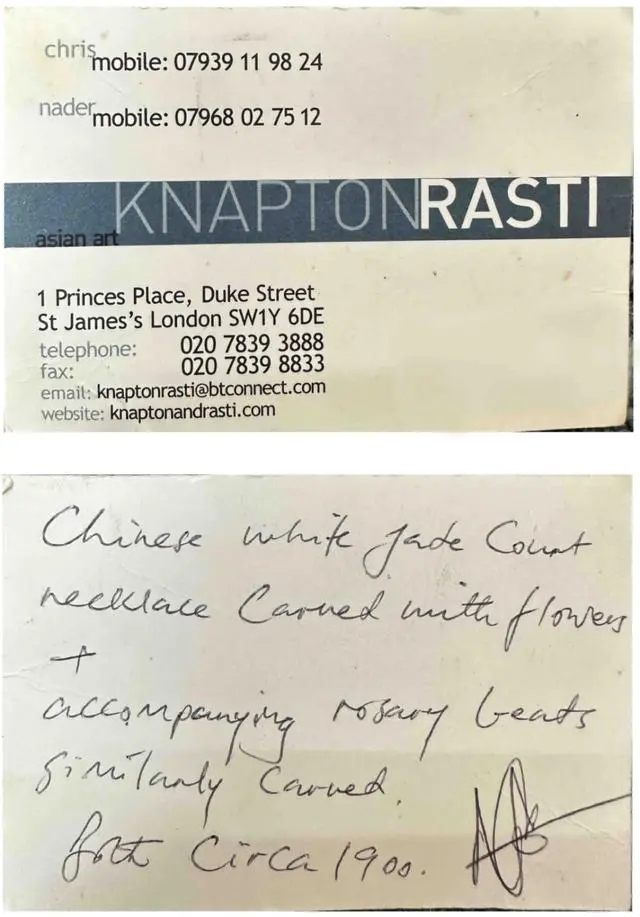 chris mobile: 07939 11 98 24
nader mobile: 07968 02 75 12
KNAPTONRASTI
asian art
1 Princes Place, Duke Street
St James's London SW1Y 6DE
telephone: 020 7839 3888
fax: 020 7839 8833
email: knaptonrasti@btconnect.com
website: knaptonandrasti.com
Chinese white Jade Court
necklace Carved with flowers
+
accompanying rosary beats
similarly Carved.
both Circa 1900.